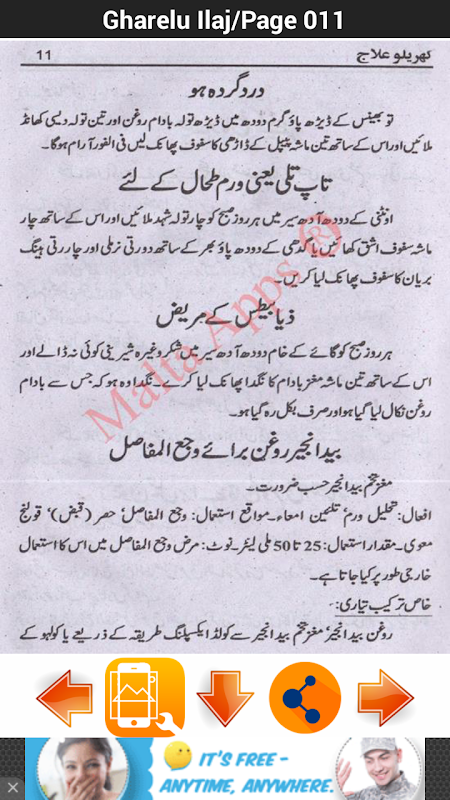 Gharelu Ilaj/Page 011
گھریلو علاج 11
درد گردہ ہو
تو بھینس کے ڈیڑھ پاؤ گرم دودھ میں ڈیڑھ تولہ بادام روغن اور تین تولہ دیسی کھانڈ
ملائیں اور اس کے ساتھ تین ماشہ پیپل کے ڈاڑھی کا سفوف پھانک لیں فی الفور آرام ہوگا۔
تاپ تلی یعنی ورم طحال کے لئے
اونٹنی کے دودھ آدھ سیر میں ہر روز صبح کو چار تولہ شہد ملائیں اور اس کے ساتھ چار
ماشہ سفوف اشق کھائیں یا گدھی کے دودھ پاؤ بھر کے ساتھ دو رتی نرملی اور چار رتی ہینگ
بریان کا سفوف پھانک لیا کریں۔
ذیابیطس کے مریض
ہر روز صبح کو گائے کے خام دودھ آدھ سیر میں شکر وغیرہ شیرینی کوئی نہ ڈالے اور
اس کے ساتھ تین ماشہ مغز بادام کا نگدا پھانک لیا کرے۔ نگدا وہ ہو کہ جس سے بادام
روغن نکال لیا گیا ہو اور صرف بکل رہ گیا ہو۔
بیدانجیر روغن برائے وجع المفاصل
مغز تخم بیدانجیر حسب ضرورت۔
افعال: تحلیل ورم، تلئین امعاء۔ مواقع استعمال: وجع المفاصل، حصر (قبض)، قولنج
معوی۔ مقدار استعمال: 25 تا 50 ملی لیٹر۔ نوٹ: مرض وجع المفاصل میں اس کا استعمال
خارجی طور پر کیا جاتا ہے۔
خاص ترکیب تیاری:
روغن بیدانجیر، مغز تخم بیدانجیر سے کولڈ ایکسپلنگ طریقہ کے ذریعے یا کولہو کے
Malta Apps ®
IT'S FREE -
ANYTIME, ANYWHERE.